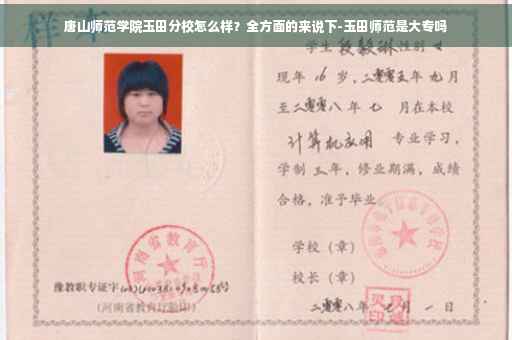 唐山师范学院玉田分校怎么样？全方面的来说下-玉田师范是大专吗
样本
学生段毅琳性别女
现年16岁，二零零五年九月
至二零零八年七月在本校
计算机应用专业学习，
学制三年，修业期满，成绩
合格，准予毕业。
河南省教育厅
学校（章）
校长（章）
豫教职专证字
（河南省教育厅验印）
二零零八年七月一日